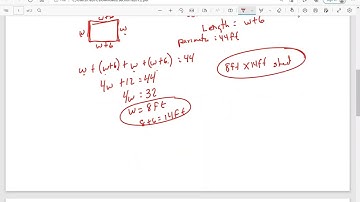 w+6
w w
w+6
Length = w+6
Perimeter = 44ft
w + (w+6) + w + (w+6) = 44
4w + 12 = 44
4w = 32
w = 8ft
8+6 = 14ft
8ft X 14ft shed